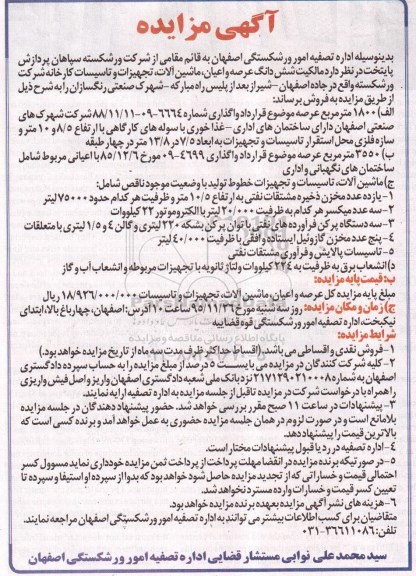 آگهی مزایده
بدینوسیله اداره تصفیه امور ورشکستگی اصفهان به قائم مقامی از شرکت ورشکسته سپاهان پردازش
پایتخت در نظر دارد مالکیت شش دانگ عرصه و اعیان، ماشین آلات، تجهیزات و تاسیسات کارخانه شرکت
ورشکسته واقع در جاده اصفهان -شیراز بعد از پلیس راه مبارکه -شهرک صنعتی رنگسازان را به شرح ذیل
از طریق مزایده به فروش برساند:
الف) ۱۸۰۰۰ متر مربع عرصه موضوع قرارداد واگذاری شماره ۰۹-۶۶۶۴-۸۸/۱۱/۱۱ شرکت شهرک های
صنعتی اصفهان دارای ساختمان های اداری -غذا خوری با سوله های کارگاهی با ارتفاع ۸/۵ و ۱۰ متر و
سازه فلزی محل استقرار تاسیسات و تجهیزات به ابعاد ۷/۵ در ۱۳/۸ متر در چهار طبقه
ب) ۳۵۵۰ متر مربع عرصه موضوع قرارداد واگذاری ۰۹-۴۶۹۹ مورخ ۸۵/۱۲/۶ با اعیانی مربوط شامل
ساختمان های نگهبانی و اداری
ج) ماشین آلات، تاسیسات و تجهیزات خطوط تولید با وضعیت موجود ناقص شامل:
۱- یازده عدد مخزن ذخیره مشتقات نفتی به ارتفاع ۱۰/۵ متر و ظرفیت هر کدام حدود ۷۵۰۰۰ لیتر
۲- سه عدد میکسر هر کدام به ظرفیت ۲۰/۰۰۰ لیتر با الکتروموتور ۲۲ کیلووات
۳- سه دستگاه پر کن فرآورده های نفتی با توان پر کن بشکه ۲۲۰ لیتری و گالن ۴ و ۱/۵ لیتری با متعلقات
۴- پنج عدد مخزن گازوئیل ایستاده و افقی با ظرفیت ۴۰/۰۰۰ لیتر
۵- تاسیسات پالایش و فرآوری مشتقات نفتی
د) انشعاب برق به ظرفیت به ۲۲۴ کیلووات ولتاژ ثانویه با تجهیزات مربوطه و انشعاب آب و گاز
ب: قیمت پایه مزایده:
مبلغ پایه مزایده کل عرصه و اعیان، ماشین آلات، تجهیزات و تاسیسات ۱۸/۹۲۶/۰۰۰/۰۰۰ ریال
ج) زمان و مکان مزایده: روز سه شنبه مورخ ۹۵/۱۱/۲۶ ساعت ۱۰ آدرس: اصفهان، چهارباغ بالا، ابتدای
نیکبخت، اداره تصفیه امور ورشکستگی قوه قضاییه
شرایط مزایده:
۱- فروش نقدی و اقساطی می باشد (اقساط حداکثر ظرف مدت سه ماه از تاریخ مزایده خواهد بود.)
۲- کلیه شرکت کنندگان در مزایده می بایست ۵ درصد از مبلغ مزایده را به حساب سپرده دادگستری
اصفهان به شماره ۲۱۷۱۲۹۰۲۱۰۰۰۸ نزد بانک ملی شعبه دادگستری اصفهان واریز و اصل فیش واریزی
را همراه با درخواست شرکت در مزایده تا قبل از جلسه مزایده به اداره تصفیه ارایه نمایند.
۳- پیشنهادات در ساعت ۱۱ صبح مقرر بررسی خواهد شد. حضور پیشنهاد دهندگان در جلسه مزایده
بلامانع است و در صورت لزوم در همان جلسه مزایده حضوری به عمل خواهد آمد و برنده کسی است که
بالاترین قیمت را پیشنهاد دهد.
۴- اداره تصفیه در رد یا قبول پیشنهادات مختار است.
۵- در صورتیکه برنده مزایده در انقضا مهلت پرداخت از پرداخت ثمن مزایده خودداری نماید مسوول کسر
احتمالی قیمت و خساراتی که از تجدید مزایده حاصل شود خواهد بود که بدوا از سپرده او استیفا و سپرده تا
تعیین کسر قیمت و خسارات وارده مسترد نخواهد شد.
۶- هزینه های نشر آگهی مزایده بعهده برنده مزایده خواهد بود.
متقاضیان برای کسب اطلاعات بیشتر می توانند به اداره تصفیه امور ورشکستگی اصفهان مراجعه نمایند.
تلفن: ۳۶۶۱۱۰۸۶-۰۳۱
سید محمد علی نوابی مستشار قضایی اداره تصفیه امور ورشکستگی اصفهان